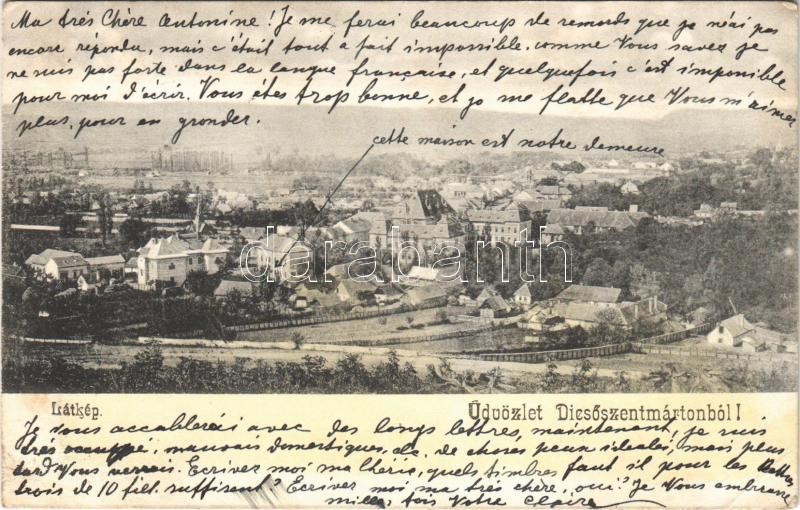 Ma trés Chère Antonine! Je me ferai beaucoup de remords que je n'ai pas
encore répondu, mais c'était tout a fait impossible. comme Vous savez je
ne suis pas forte dans la langue française, et quelquefois c'est impossible
pour moi d'écrir. Vous étes trop bonne, et je me flatte que Vous m'aimer
plus, pour en gronder.
cette maison est notre demeure
darabanth.com
Látkép.
Üdvözlet Dicsőszentmártonból!
Je vous accablerai avec des longs lettres, maintenant, je suis
trés occuppé, mauvais domestiques, de choses peu ideales, mais plus
tard Vous verrais. Ecriver moi ma Chérie, quels timbres faut il pour les lettres
trois de 10 fill. suffisent? Ecriver moi ma trés chère, oui? Je Vous embrasse
mille fois Votre Claire